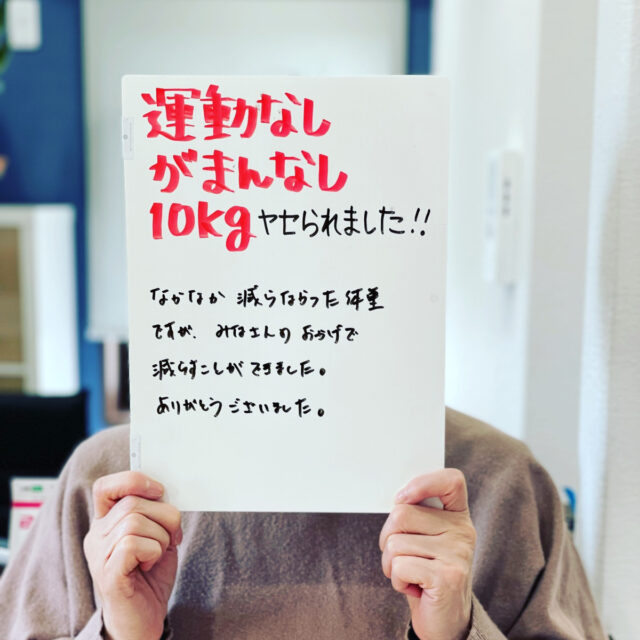 運動なし
がまんなし
10kgヤセられました!!
なかなか 減らなかった 体重
ですが、みなさんの おかげで
減らすことができました。
ありがとうございました。